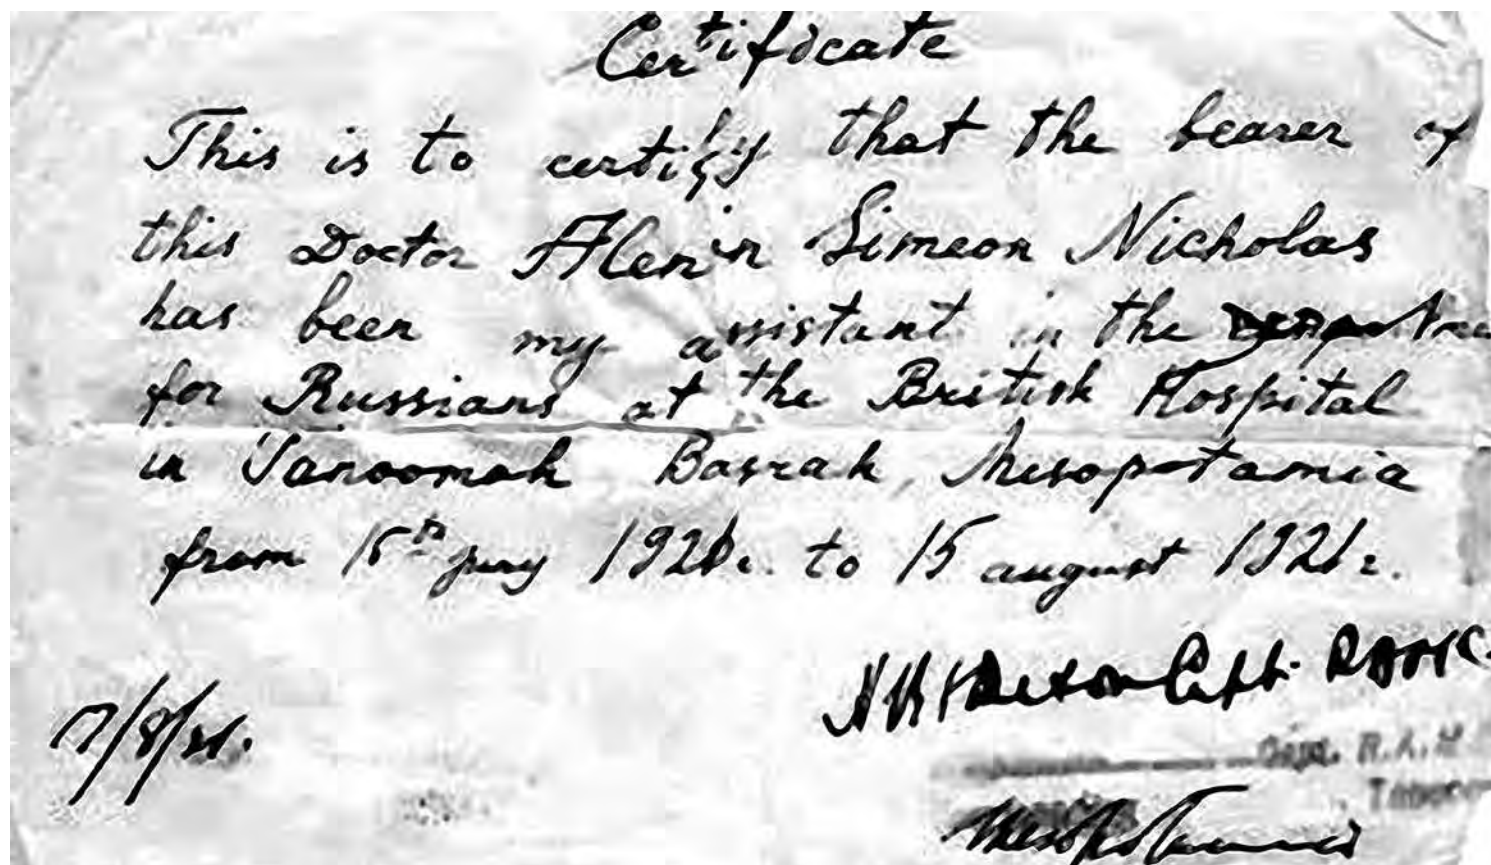 Certificate
This is to certify that the bearer of
this Doctor Alenin Simeon Nicholas
has been my assistant in the
for Russians at the British Hospital
in Tanoomah Basrah, Mesopotamia
from 15th juny 1921. to 15 august 1921.
Capt. RAMC.
17/8/21.
Capt. R.A.M
Mesopotamia